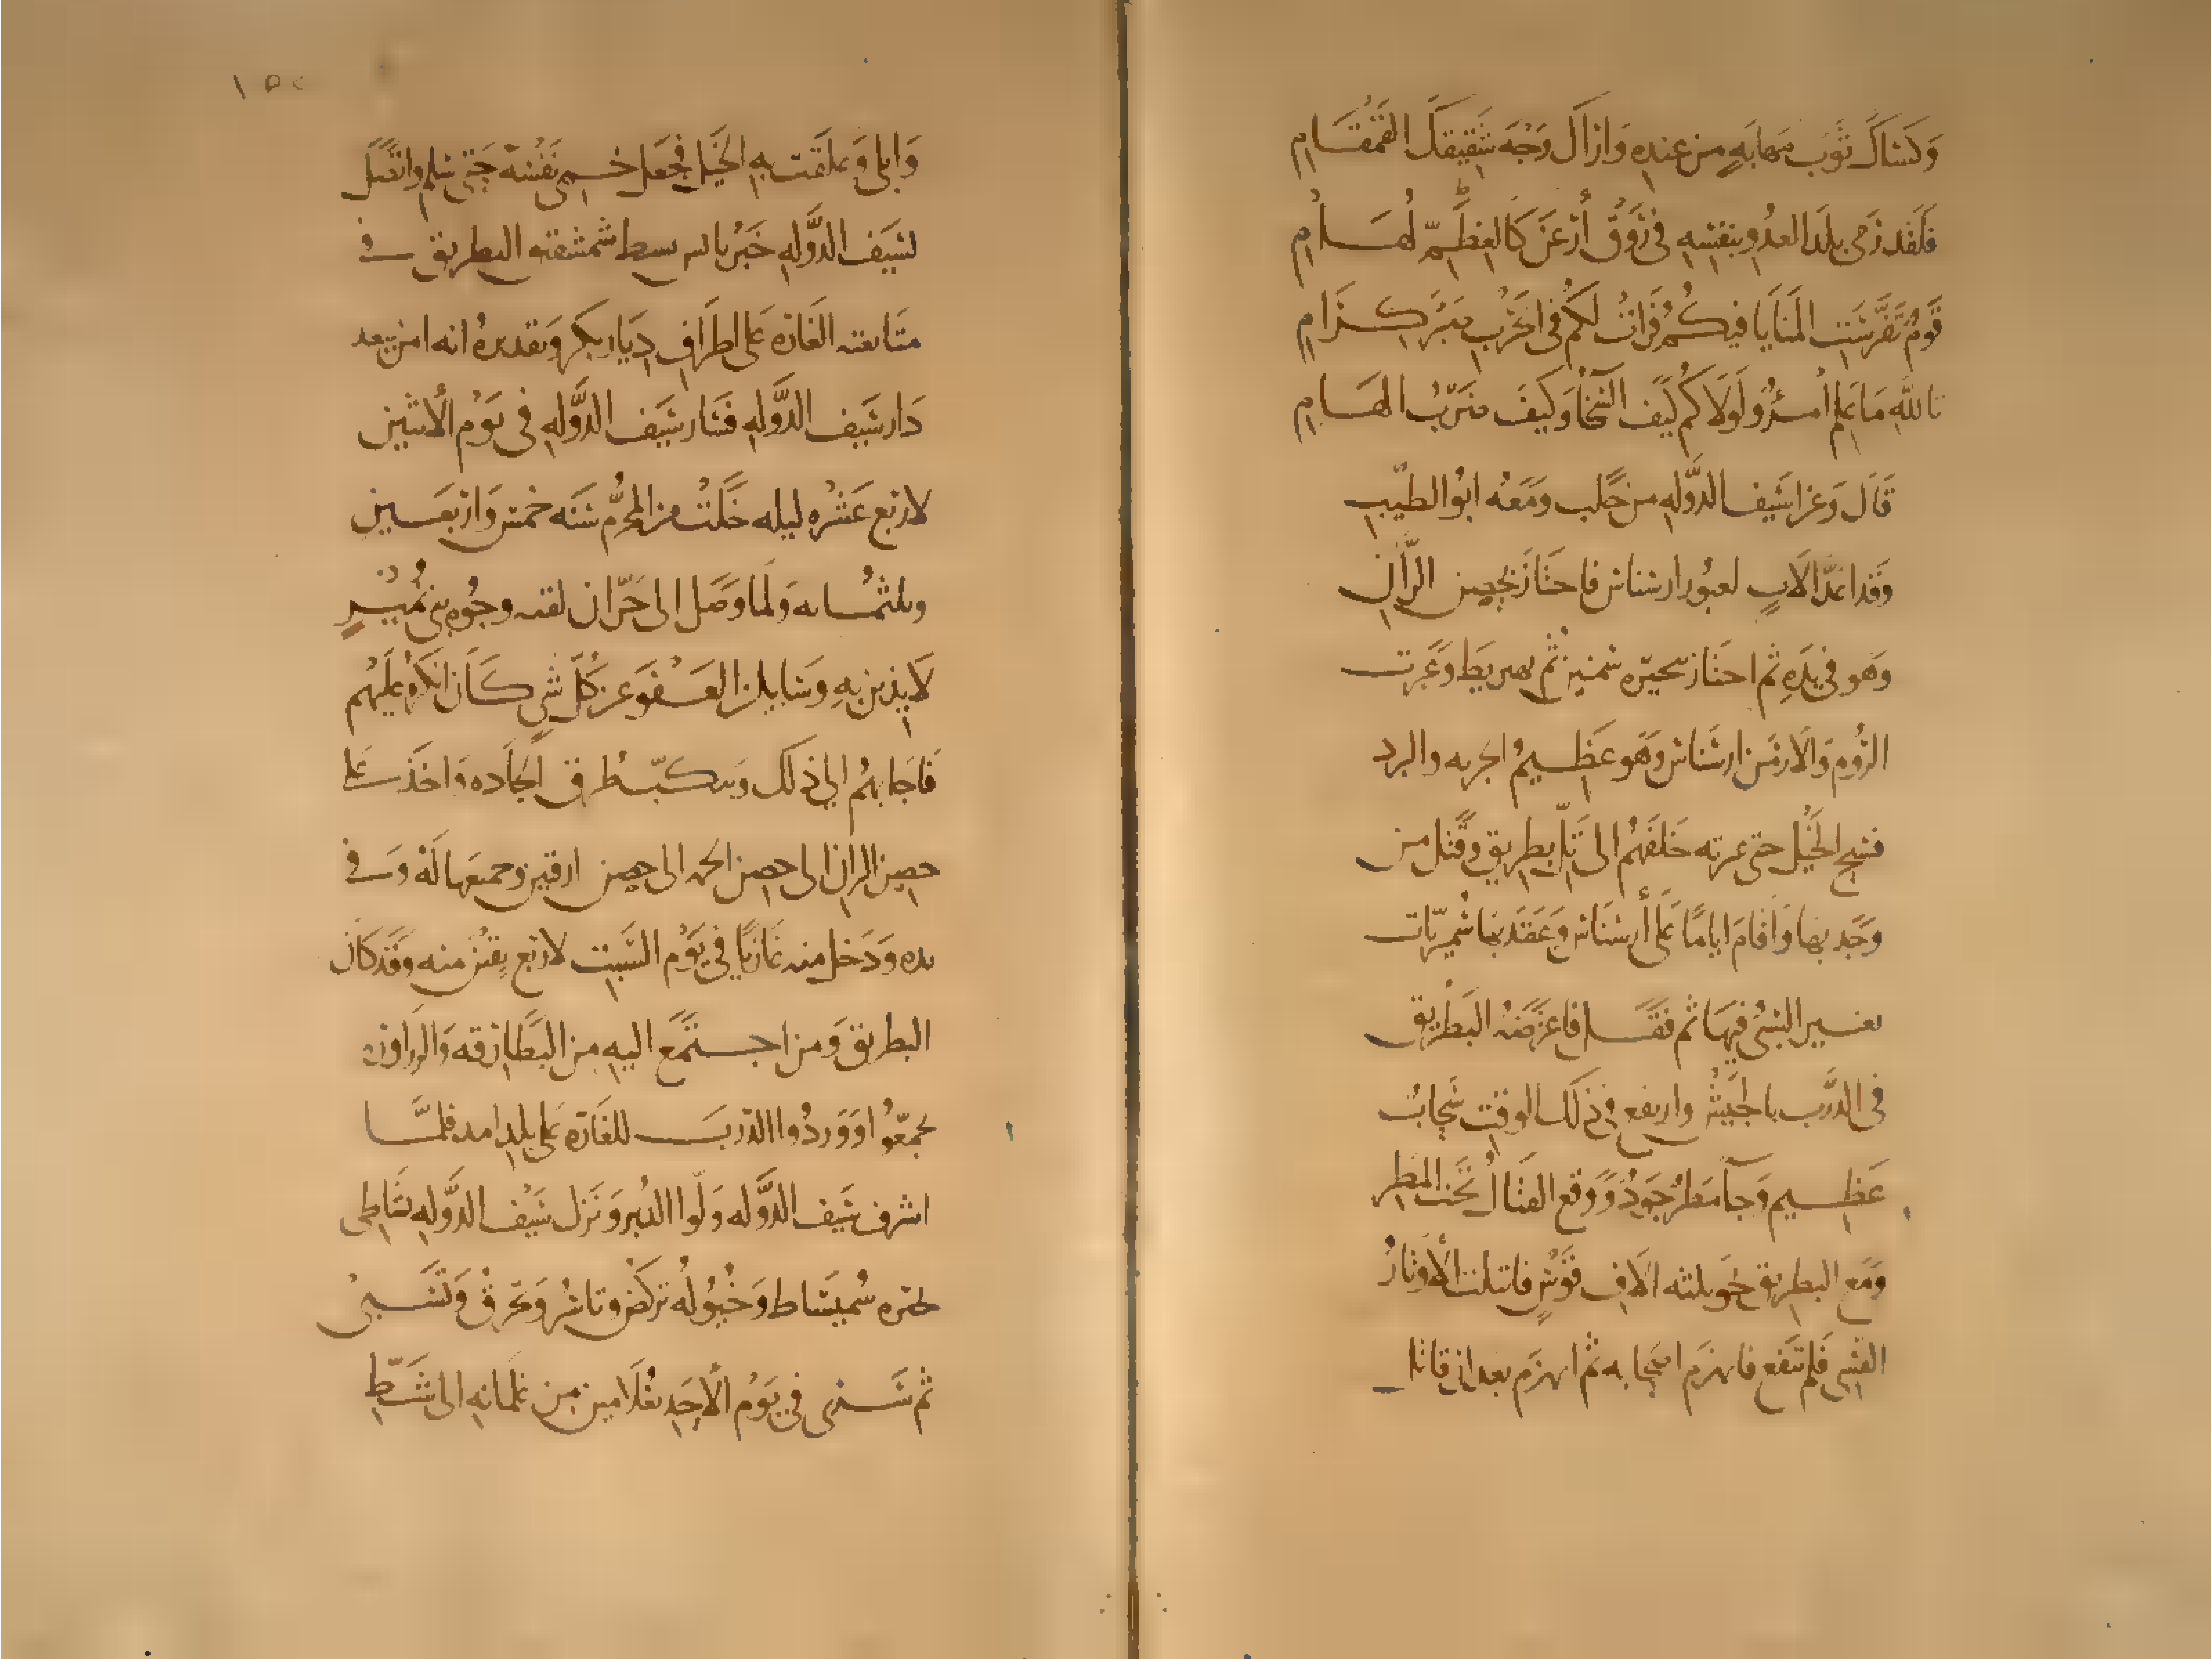 وَكَسَاكَ ثَوبَ مَهابَةٍ من عنده وَازاكَ وَجْهَ شَقيقكَ القَمْقَامِ
فَلَقد رَمى بلدَ العدُو بنفسِهِ في رَوْقِ أرْعَنَ كالغِطَمّ لُهَامِ
قَومٌ تَفَرَّسَتِ المَنَايَا فيكُم فَرَاتْ لكم في الحَرْبِ صَبْرَ كِرَامِ
تاللَّهِ مَا عَلِمَ امرُؤٌ لَولَاكُم كَيفَ السَّخَا وَكيفَ ضَرْبُ الهَامِ
قَالَ وَغزا سَيف الدَّولهِ من حَلب ومَعَهُ ابُو الطيّبِ
وَقد اعَدَّ الآلاتِ لعبُور ارسناس فاجتَازَ بحِصن الرَّان
وَهو في يَدِهِ ثم اجتاز بحيَره سمنين ثم بهنريط وَعَبرت
الرُوم وَالأرمَن ارسَناس وَهو عَظِيمُ الجريه والبرد
فسَبح الخَيل حتى عبرته خَلفَهُم الى تَل بطريق وَقتل من
وَجَد بها وَأقَامَ ايامًا عَلى أرسَناس وَعَقَد بها سُمَيريّات
يعسير السَبىُ فيهَا ثم قفَل فاعترَضَهُ البَطريق
في الدَّرب باجَيْش وارتفع في ذلك الوقتِ سَحابٌ
عَظِيم وَجآ مَطرُ جَودٌ وَوقع القتَال تَحْت المَطر
وَمَع البطريق نحو ثلثه الَافِ قَوْسٍ فابتلت الأوتارُ
القسِى فَلم تَنفَع فانهزم اصحَابه ثم انهزَم بعد ان قاتل
١٥٢
وَابلى وَعلقت بهِ الخَيل فجعَل يحمى نفسَهُ حَتى سَلم وَاتصَل
لسَيف الدَّولهِ خَبرُ يانس بن شمشقيق البطريق في
متابعته الغَاره عَلى اطرَافِ دِيَار بكر وَتقديرهُ انه امن ببعد
دَار سَيف الدَّولهِ فسَار سَيف الدَّولهِ في يَوْم الأثنين
لاربع عَشرَه ليله خَلَتْ من المُحَرَّم سَنَه خمس وَاربعَين
وثلثمُايه وَلما وَصَل الى حَرّان لقيته وجُوه بني نُمَيْر
لَايذين بهِ وسَايلين العَفوَ عن كلّ شى كَان انكره عَليهم
فَاجَابهُم الى ذلك وَتنكّب طُرق الجَاده وَاخذ على
حصن الران الى حِصن الحمه الى حِصن ارقنين وجميعها لَهُ وَفي
يده وَدَخل منه غَازيًا في يَوْم السَبت لاربع بقين منه وَقد كان
البطريق وَمن اجتمع اليه من البَطَارقه وَالزراوره
تجمّعُوا وَوَردُوا الدرب للغَارَه عَلى بلد امد فلمَّا
اشرف سَيف الدَّوله وَلّوا الدبر وَنَزل سَيف الدَّولهِ شَاطى
بحيره سُميسَاط وَخيُولهُ تركض وتاسُر وَتحرقُ وَتَسبى
ثم سَرى في يَوْم الأحَد بغلَامين من غلمانهِ الى شَطِّ